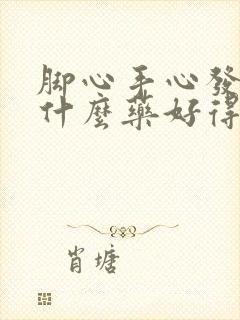 脚心手心發
什麼藥好得
肖塘